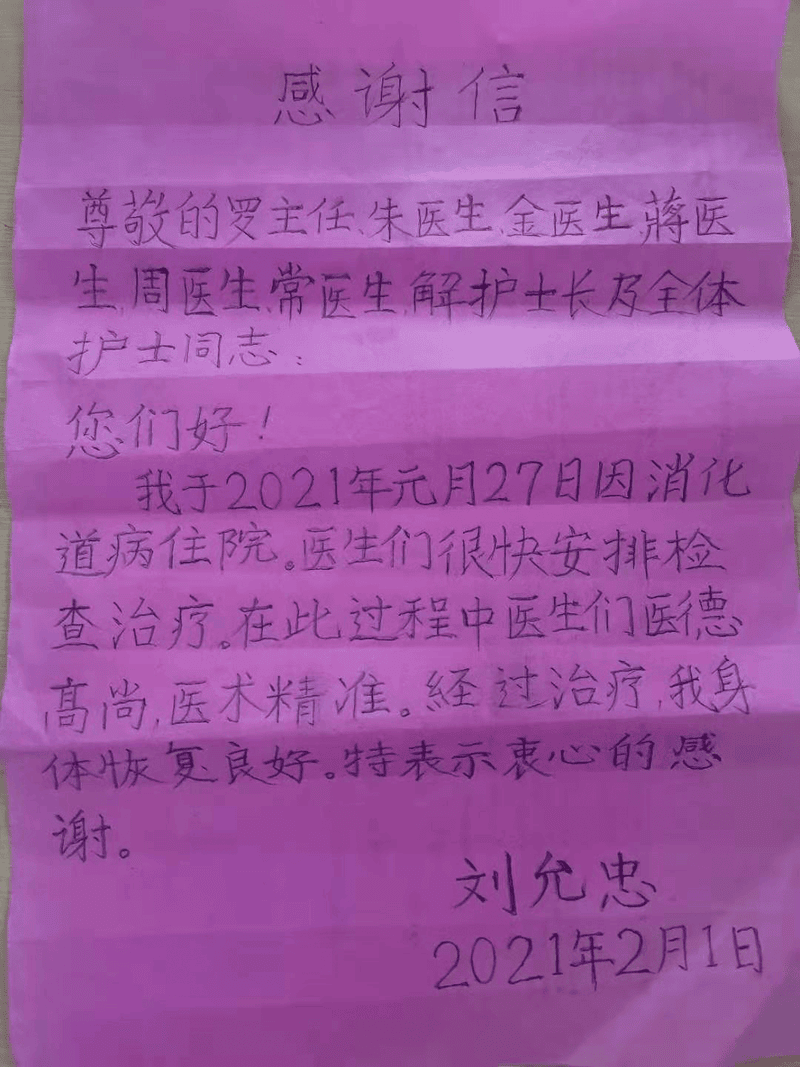 感谢信
尊敬的罗主任、朱医生、金医生、蒋医
生、周医生、常医生、解护士长及全体
护士同志：
您们好！
我于2021年元月27日因消化
道病住院。医生们很快安排检
查治疗。在此过程中医生们医德
高尚,医术精准。経过治疗,我身
体恢复良好。特表示衷心的感
谢。
刘允忠
2021年2月1日